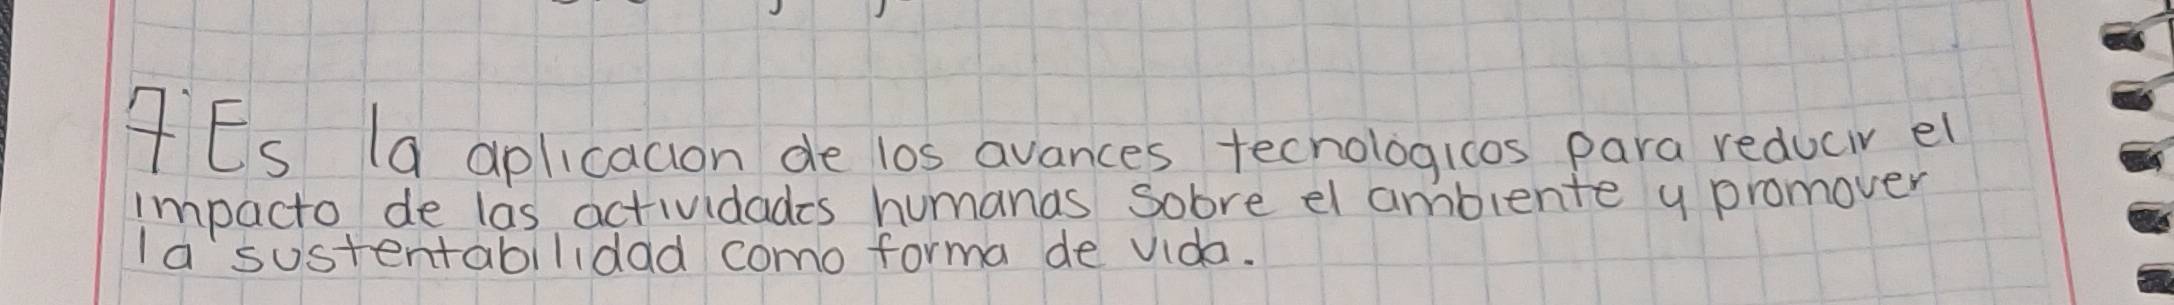 7 Es la aplicacion de los avances tecnológicos para reducir el
impacto de las actividades humanas sobre el ambiente y promover
la sustentabilidad como forma de vida.